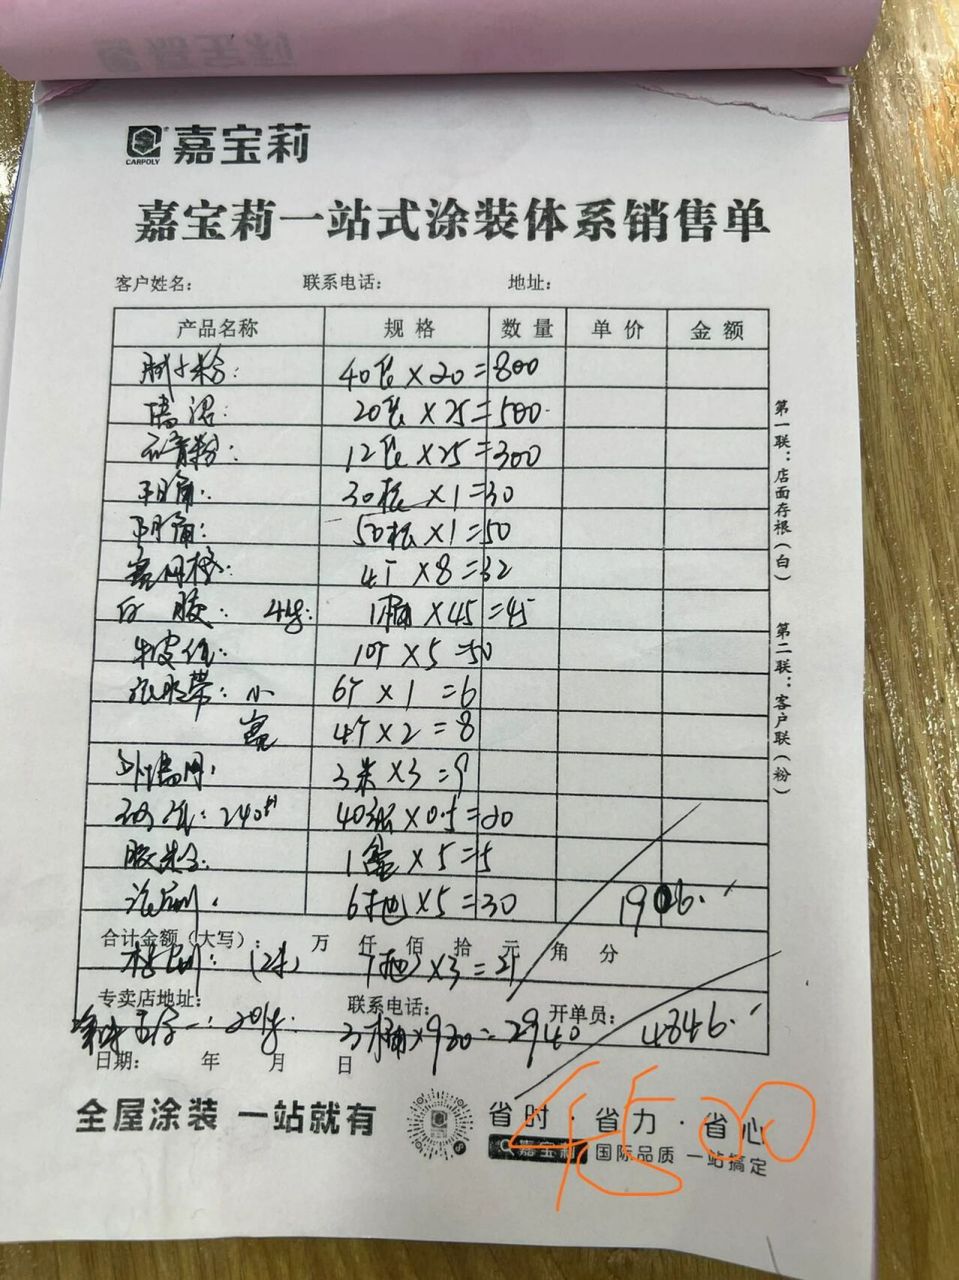 嘉宝莉
CARPOLY
嘉宝莉一站式涂装体系销售单
客户姓名: 联系电话: 地址:
产品名称 规格 数量 单价 金额
腻子粉: 40包×20=800
20包×25=500
石膏粉: 12包×25=300
阴角. 30根×1=30
阳角: 50根×1=50
4个×8=32
白胶: 4kg: 1桶×45=45
牛皮纸: 10个×5=50
小 6个×1=6
宽 4个×2=8
外墙网. 3米×3=9
砂纸: 240# 40张×0.5=20
1盒×5=5
6把×5=30 1906.
合计金额(大写): 万仟佰拾元角分
(2寸) 7把×3=21
专卖店地址: 联系电话: 开单员:
20kg: 3桶×980=2940 4846.
日期: 年 月 日
第一联:店面存根(白)
第二联:客户联(粉)
全屋涂装 一站就有
省时·省力·省心
嘉宝莉 国际品质 一站搞定
4500